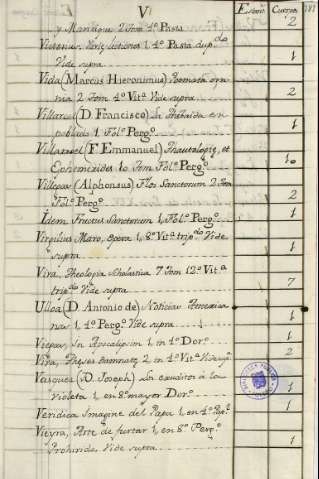 V. Estan.s Cuerpos 181
y Manrique 2 Tom. 4º Pasta 2
Victorius, Variæ lectiones 1, 4º Pasta dup.do
Vide supra 1
Vida (Marcus Hieronimus) Poemata om
nia 2 Tom 4º Vit.ª Vide supra 2
Villarroel (D. Francisco) La Thebaida en
poblado 1, Folº Pergº 1
Villarroel (F. Emmanuel) Thautologiæ, et
Ephemerides 10 Tom. Folº Pergº 10
Villegas (Alphonsus) Flos Sanctorum 2 Tom
Folº Pergº 2
Idem Fructus Sanctorum 1, Folº Pergº 1
Virgilius Maro, opera 1, 8º Vit.ª trip.do Vide
supra 1
Viva, Theologia Scholastica 7 Tom 12º Vit.ª
trip.do Vide supra 7
Ulloa (D. Antonio de) Noticias America
nas 1, 4º Pergº Vide supra 1
Viegas, In Apocalipsim 1, in 4º Dorº 1
Viva, Theses damnatæ 2 in 4º Vit.ª Vide sup.ª 2
Vazquez (D. Joseph) Los eruditos á la
violeta 1, en 8º mayor Dorº 1
Veridica Imagine del Papa 1, en 4º Pergº 1
Vieyra, Arte de furtar 1, en 8º Pergº
Prohivido. Vide supra 1